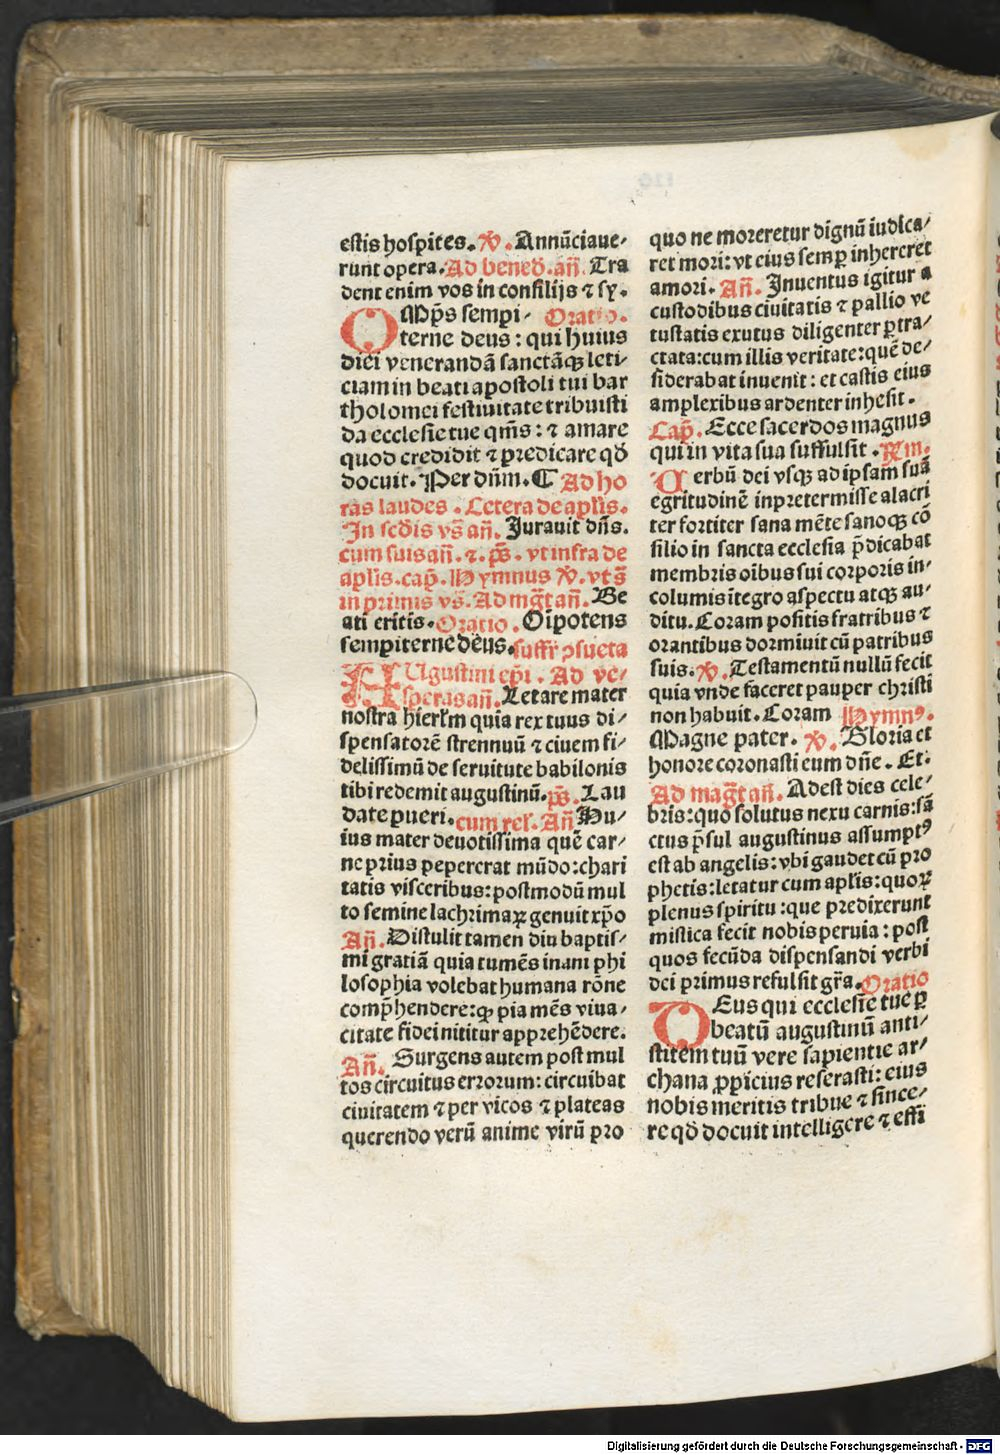 estis hospites. ℣. Annūciaue⸗
runt opera. Ad bened̄. an̄. Tra
dent enim vos in consilijs ⁊ sy.
OMp̄s sempi⸗ Oratio.
terne deus: qui huius
diei venerandā sanctāqꝫ leti⸗
ciam in beati apostoli tui bar
tholomei festiuitate tribuisti
da ecclesie tue qm̄s: ⁊ amare
quod credidit ⁊ predicare qd̄
docuit. Per dn̄m. ⸿ Ad ho
ras laudes. Cetera de apl̄is.
In scd̄is vs̄ an̄. Jurauit dn̄s.
cum suis an̄. ⁊. ps̄. vt infra de
apl̄is. cap̄. Hymnus ℣. vt s̄
in primis vs̄. Ad mḡt an̄. Be
ati eritis. Oratio. Oīpotens
sempiterne dēus. suffr̄ ꝯsueta
AUgustini ep̄i. Ad ve⸗
speras an̄. Letare mater
nostra hierl̄m quia rex tuus di⸗
spensatorē strennuū ⁊ ciuem fi⸗
delissimū de seruitute babilonis
tibi redemit augustinū. ps̄. Lau
date pueri. cum rel̄. An̄ Hu⸗
ius mater deuotissima quē car⸗
ne prius pepererat mūdo: chari
tatis visceribus: postmodū mul
to semine lachrimaꝝ genuit xp̄o
An̄. Distulit tamen diu baptis⸗
mi gratiā quia tumēs inani phi
losophia volebat humana rōne
comp̄hendere: qꝫ pia mēs viua⸗
citate fidei nititur apprehēdere.
An̄. Surgens autem post mul
tos circuitus errorum: circuibat
ciuitatem ⁊ per vicos ⁊ plateas
querendo verū anime virū pro
quo ne moreretur dignū iudica⸗
ret mori: vt eius semꝑ inhereret
amori. An̄. Inuentus igitur a
custodibus ciuitatis ⁊ pallio ve
tustatis exutus diligenter ꝑtra⸗
ctata: cum illis veritate: quē de⸗
siderabat inuenit: et castis eius
amplexibus ardenter inhesit.
Cap̄. Ecce sacerdos magnus
qui in vita sua suffulsit. R̄m.
Verbū dei vsqꝫ ad ipsam suā
egritudinē inpretermisse alacri
ter fortiter sana mēte sanoqꝫ cō
silio in sancta ecclesia p̄dicabat
membris oībus sui corporis in⸗
columis ītegro aspectu atqꝫ au⸗
ditu. Coram positis fratribus ⁊
orantibus dormiuit cū patribus
suis. ℣. Testamentū nullū fecit
quia vnde faceret pauper christi
non habuit. Coram Hymnꝰ.
Magne pater. ℣. Gloria et
honore coronasti eum dn̄e. Et.
Ad maḡt an̄. Adest dies cele⸗
bris: quo solutus nexu carnis: sā
ctus p̄sul augustinus assumptꝰ
est ab angelis: vbi gaudet cū pro
phetis: letatur cum apl̄is: quoꝝ
plenus spiritu: que predixerunt
mistica fecit nobis peruia: post
quos fecūda dispensandi verbi
dei primus refulsit gr̄a. Oratio
DEus qui ecclesie tue ꝑ
beatū augustinū anti⸗
stitem tuū vere sapientie ar⸗
chana ꝓpicius reserasti: eius
nobis meritis tribue ⁊ since⸗
re qd̄ docuit intelligere ⁊ effi
Digitalisierung gefördert durch die Deutsche Forschungsgemeinschaft - DFG